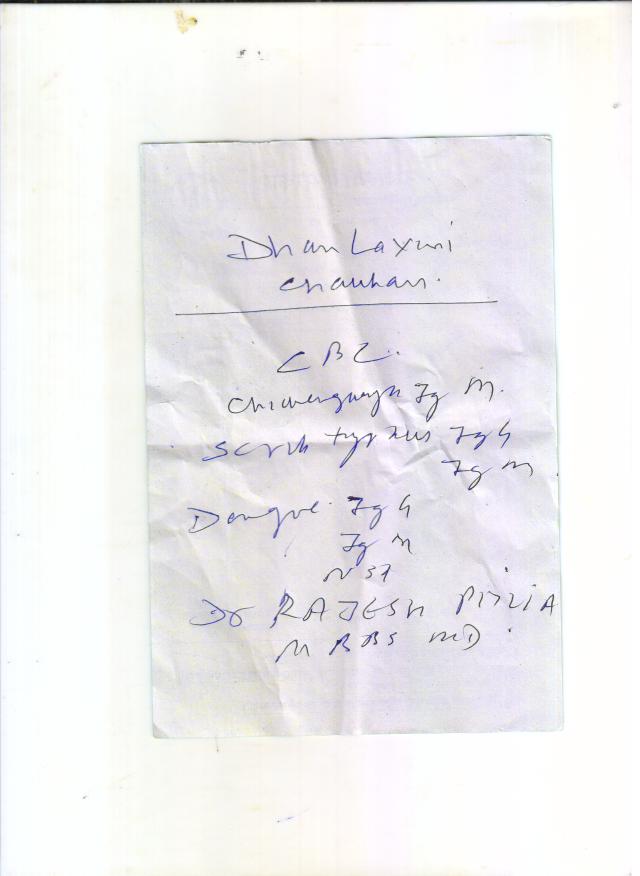 Dhan Laxmi
Chauhan.
CBC.
Chicungunya Ig M.
Scrub typhus Ig G
Ig M
Dengue Ig G
Ig M
NS1
Dr RAJESH
MBBS MD.